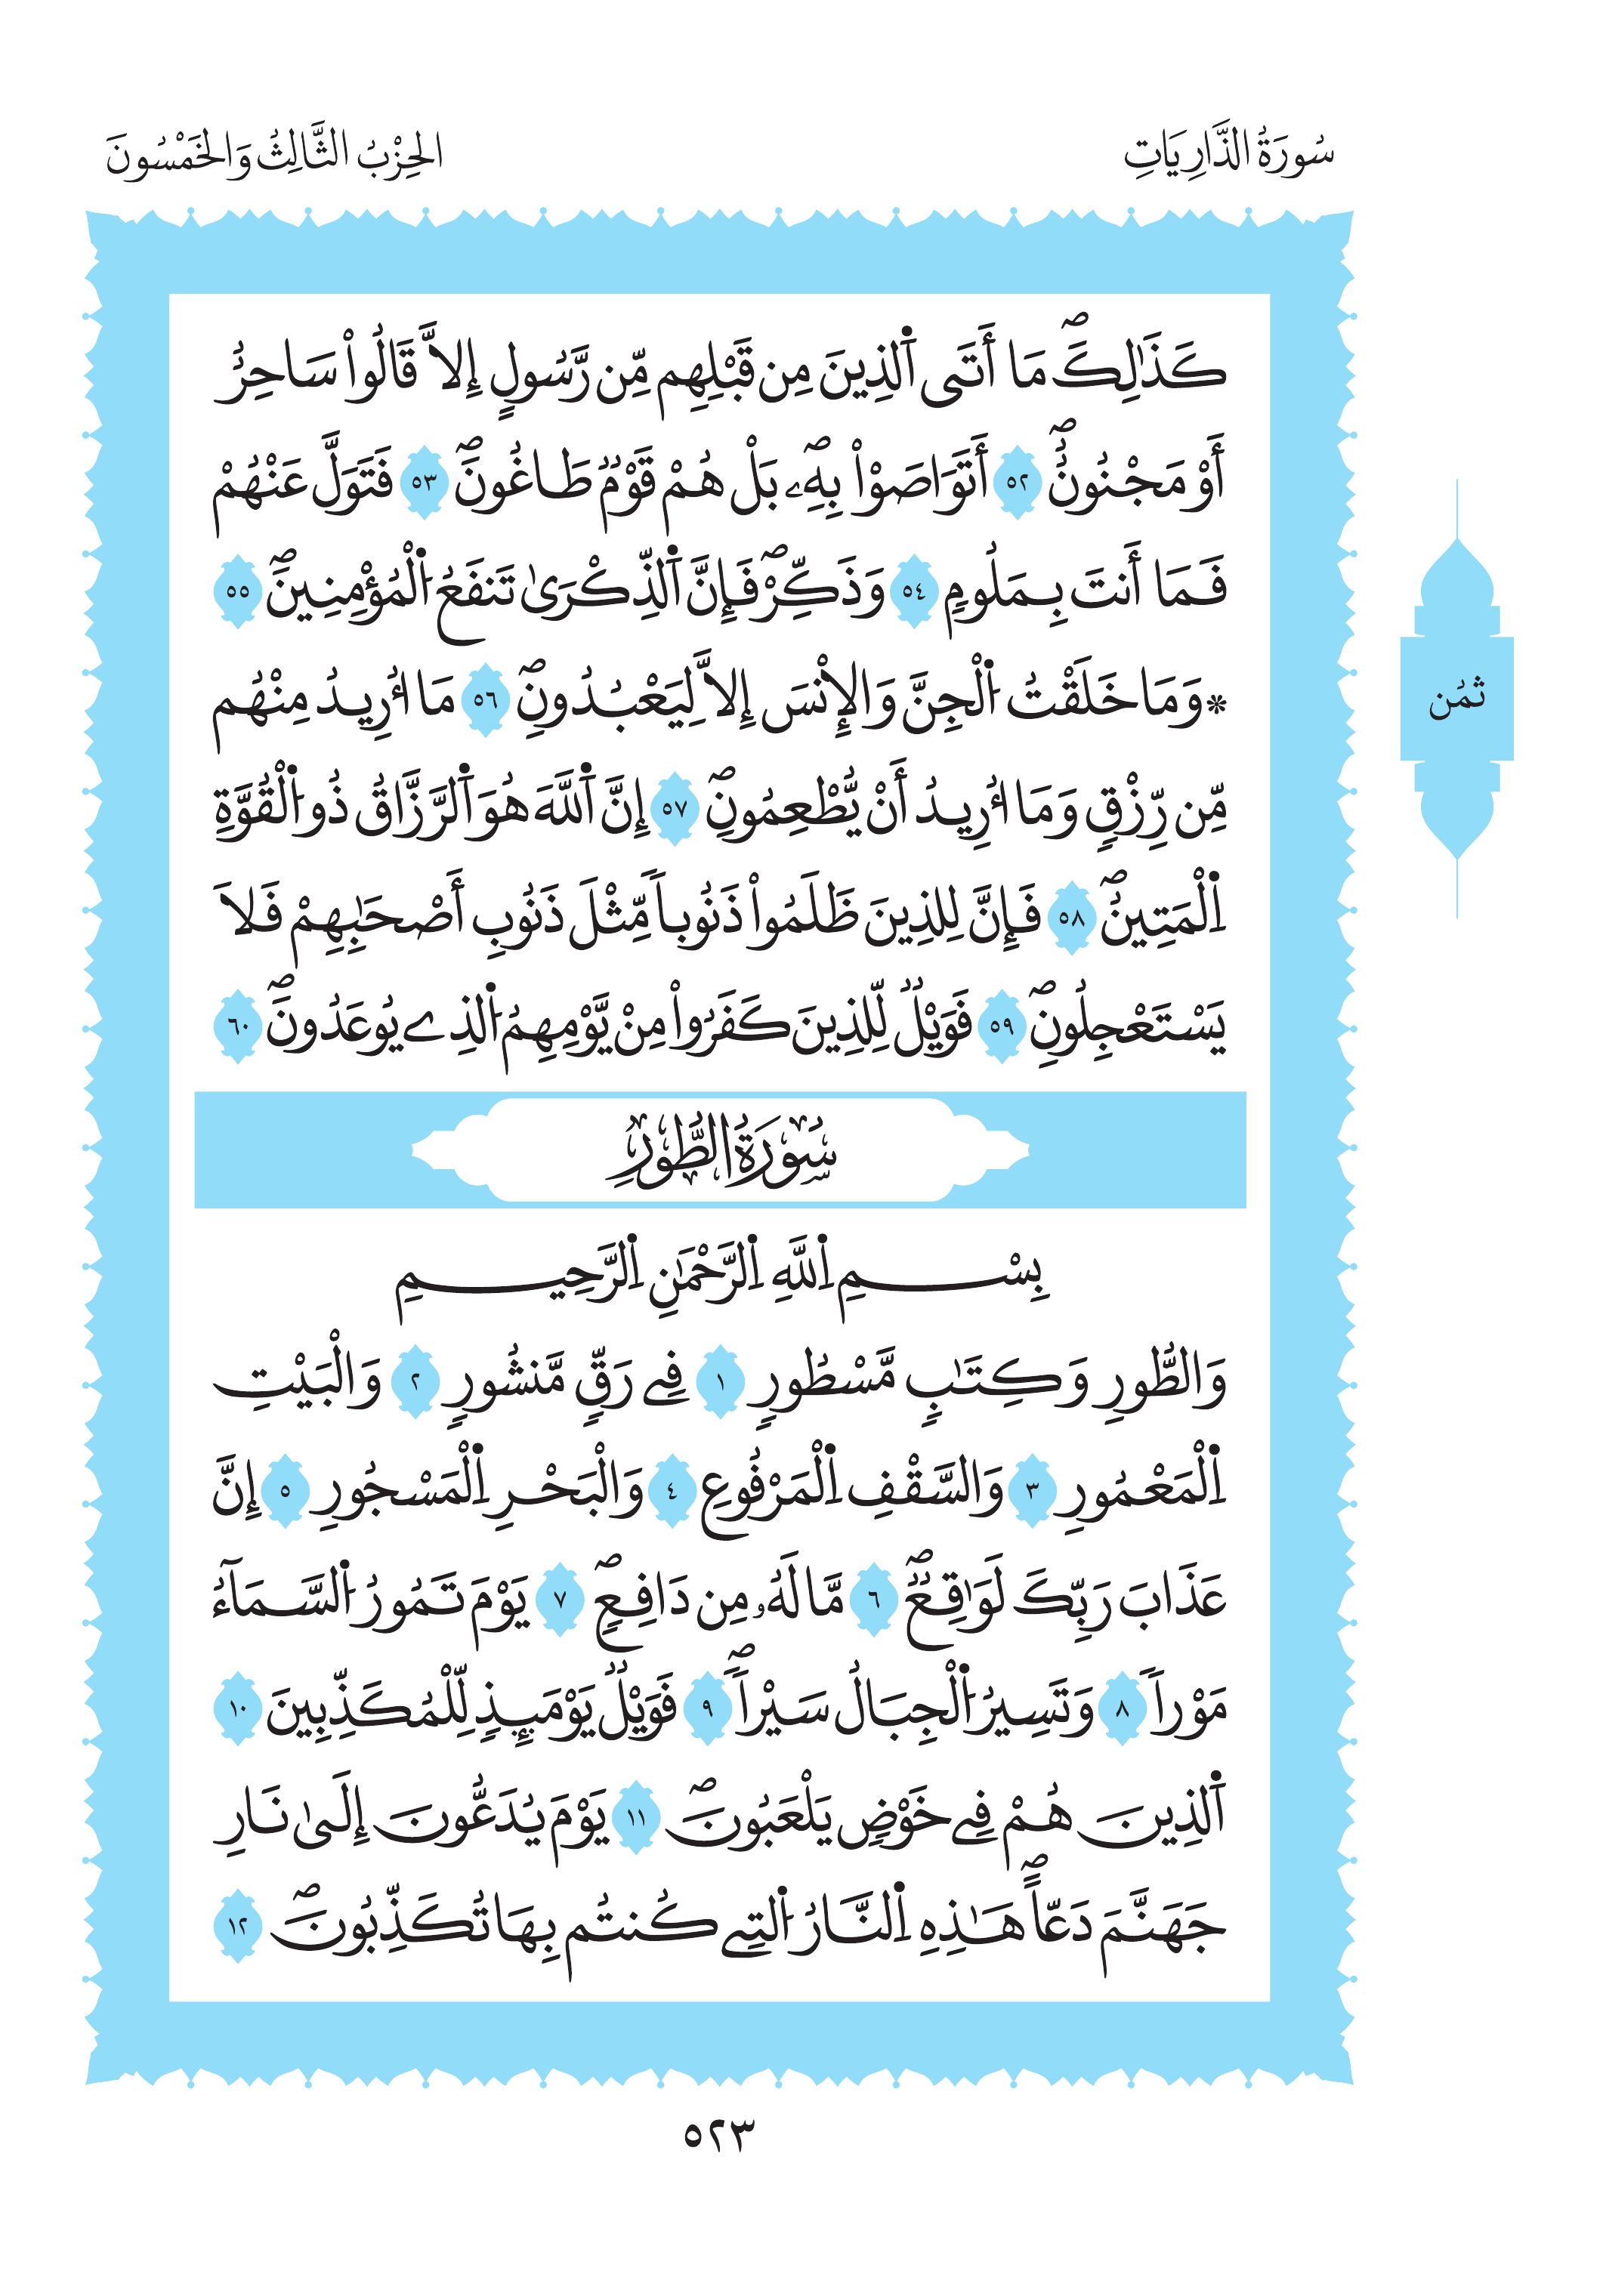 سُورَةُ الذَّارِيَاتِ
الحِزْبُ الثَّالِثُ وَالخَمْسُونَ
كَذَٰلِكَۖ مَا أَتَى اَ۬لذِينَ مِن قَبْلِهِم مِّن رَّسُولٍ إِلاَّ قَالُواْ سَاحِرٌ
أَوْ مَجْنُونٌۖ ٥٢ أَتَوَاصَوْاْ بِهِۦۖ بَلْ هُمْ قَوْمٞ طَاغُونَۖ ٥٣ فَتَوَلَّ عَنْهُمْ
فَمَا أَنتَ بِمَلُومٖ ٥٤ وَذَكِّرْۖ فَإِنَّ اَ۬لذِّكْرَىٰ تَنفَعُ اُ۬لْمُؤْمِنِينَۖ ٥٥
* وَمَا خَلَقْتُ اُ۬لْجِنَّ وَالِانْسَ إِلاَّ لِيَعْبُدُونِۖ ٥٦ مَا أُرِيدُ مِنْهُم
مِّن رِّزْقٖ وَمَا أُرِيدُ أَنْ يُّطْعِمُونِۖ ٥٧ إِنَّ اَ۬للَّهَ هُوَ اَ۬لرَّزَّاقُ ذُو اُ۬لْقُوَّةِ
اِ۬لْمَتِينُۖ ٥٨ فَإِنَّ لِلذِينَ ظَلَمُواْ ذَنُوباٗ مِّثْلَ ذَنُوبِ أَصْحَٰبِهِمْ فَلاَ
يَسْتَعْجِلُونِۖ ٥٩ فَوَيْلٞ لِّلذِينَ كَفَرُواْ مِنْ يَّوْمِهِمُ اُ۬لذِے يُوعَدُونَۖ ٦٠
سُورَةُ الطُّورِ
بِسْمِ اِ۬للَّهِ اِ۬لرَّحْمَٰنِ اِ۬لرَّحِيمِ
وَالطُّورِ وَكِتَٰبٖ مَّسْطُورٖ ١ فِے رَقّٖ مَّنشُورٖ ٢ وَالْبَيْتِ
اِ۬لْمَعْمُورِ ٣ وَالسَّقْفِ اِ۬لْمَرْفُوعِ ٤ وَالْبَحْرِ اِ۬لْمَسْجُورِ ٥ إِنَّ
عَذَابَ رَبِّكَ لَوَٰقِعٞۖ ٦ مَّا لَهُۥ مِن دَافِعٖۖ ٧ يَوْمَ تَمُورُ اُ۬لسَّمَآءُ
مَوْراٗ ٨ وَتَسِيرُ اُ۬لْجِبَالُ سَيْراٗۖ ٩ فَوَيْلٞ يَوْمَئِذٖ لِّلْمُكَذِّبِينَ ١٠
اَ۬لذِينَ هُمْ فِے خَوْضٖ يَلْعَبُونَۖ ١١ يَوْمَ يُدَعُّونَ إِلَىٰ نَارِ
جَهَنَّمَ دَعّاًۖ هَٰذِهِ اِ۬لنَّارُ اُ۬لتِے كُنتُم بِهَا تُكَذِّبُونَۖ ١٢
ثمُن
٥٢٣